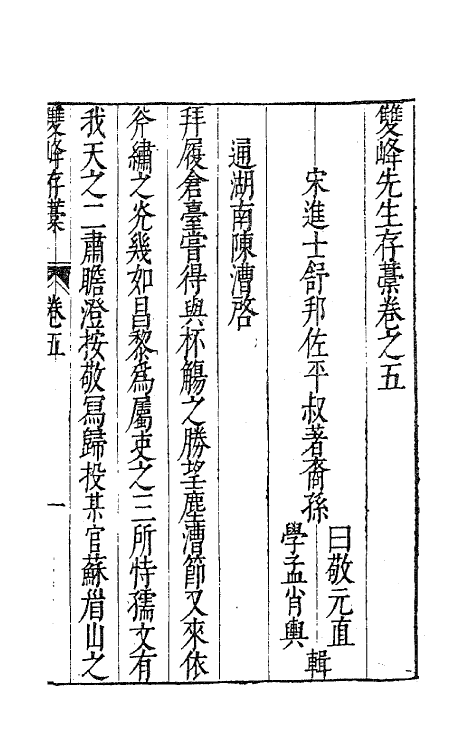 雙峰先生存藁卷之五
宋進士舒邦佐平叔著裔孫
曰敬元直
學孟肖輿
輯
通湖南陳漕啓
拜履倉臺嘗得與杯觴之勝望塵漕節又來依
斧繡之光幾如昌黎爲屬吏之三所恃孺文有
我天之二肅瞻澄按敬冩歸投某官蘇眉山之
雙峰存藁
卷五
一